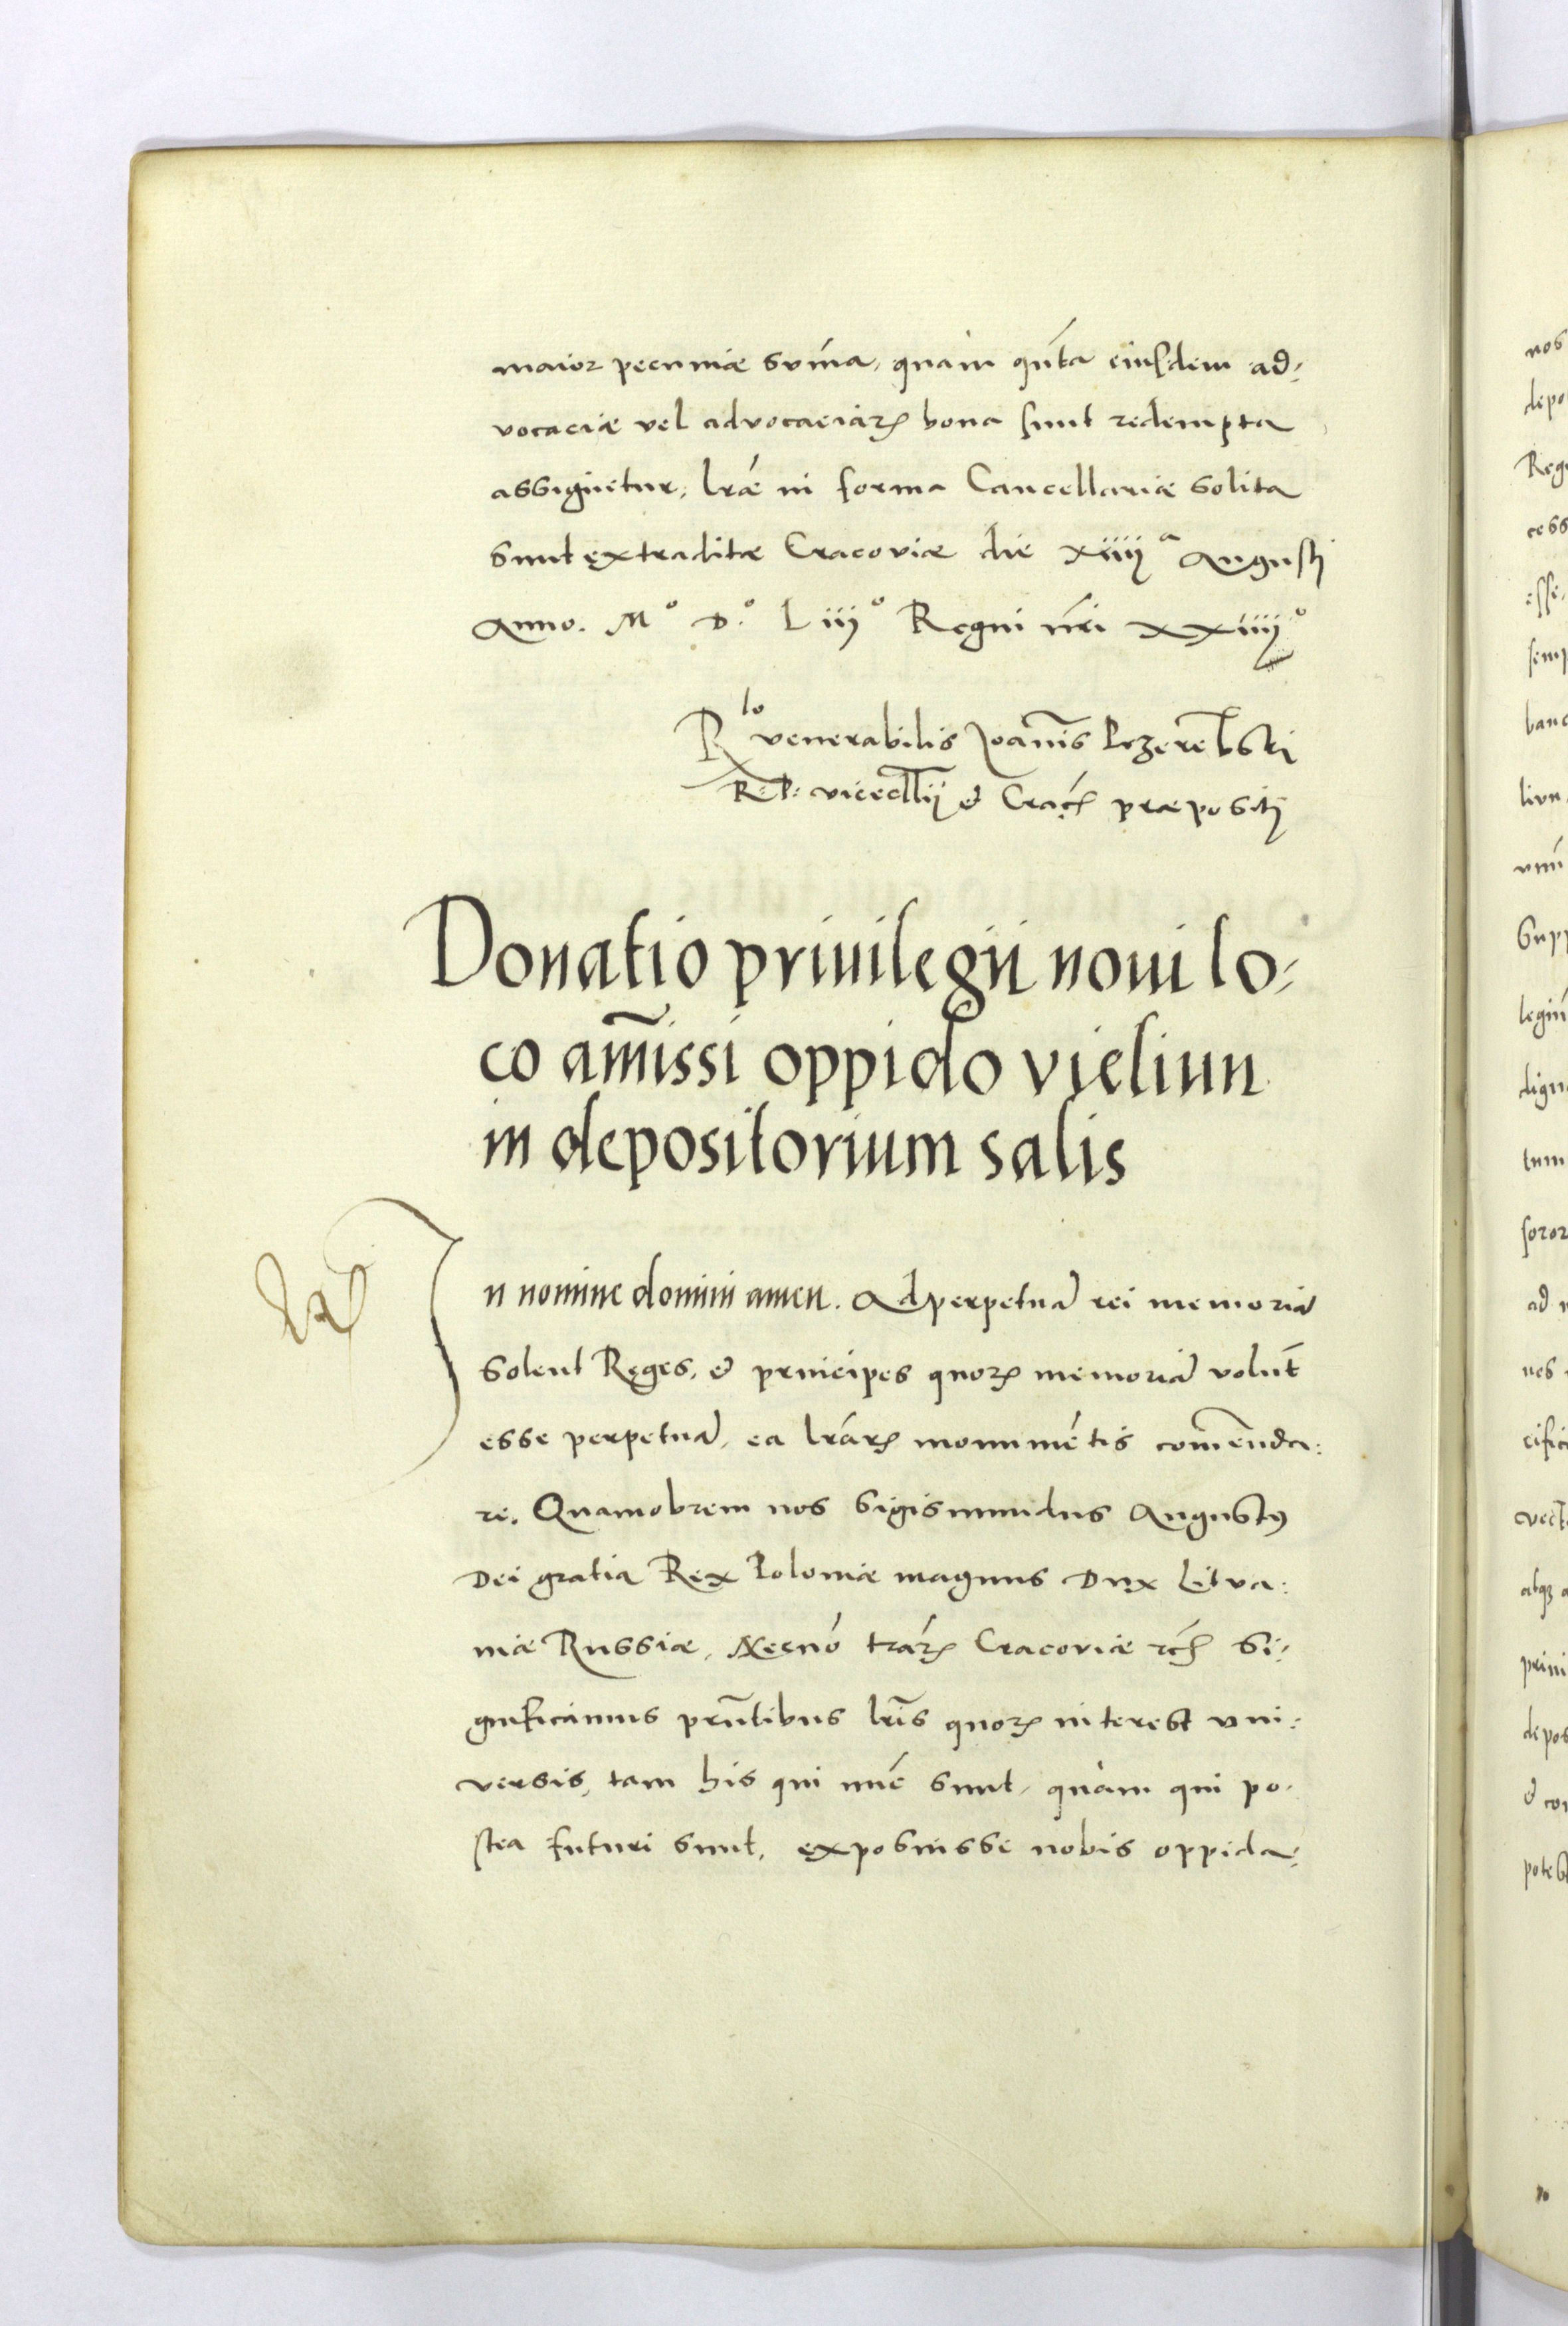 maior pecuniæ sum̃a, quàm qñta eiusdem ad:
vocaciæ vel advocaciarꝝ bona sunt redempta
assigñetur, lræ̃ in forma Cancellariæ solita
sunt extraditæ Cracoviæ die xiiijᵃ Augusti
Anno. Mº D.º Liijº Regni nr̃i xxiiijº
Rˡᵒ venerabilis Joañis Przerẽbski
R: P: vicecllij̃ & Cracꝝ̃ præpositi
Donatio priuilegii noui lo:
co am̃issi oppido vieliun
in depositorium salis
In nomine domini amen. Ad perpetuã rei memoriã
solent Reges, & principes quorꝝ memoriã volũt
esse perpetuã, ea lr̃arꝝ monumẽtis com̃enda:
re. Quamobrem nos Sigismundus Augustꝰ
Dei gratia Rex Poloniæ magnus Dux Litva:
niæ Russiæ, Necnõ tr̃arꝝ Cracoviæ rc̃
si:
gnificamus prñtibus lr̃is quorꝝ interest vni:
versis, tam his qui nũc sunt, quàm qui po.
stea futuri sunt, exposuisse nobis oppida:
nos
depo
Reg
cess
esse,
semp
banc
livn
vnũ
supp
legiũ
dign
tum
soror
ad
nes
cific
vect
atqꝫ a
privi
depos
& co
potest